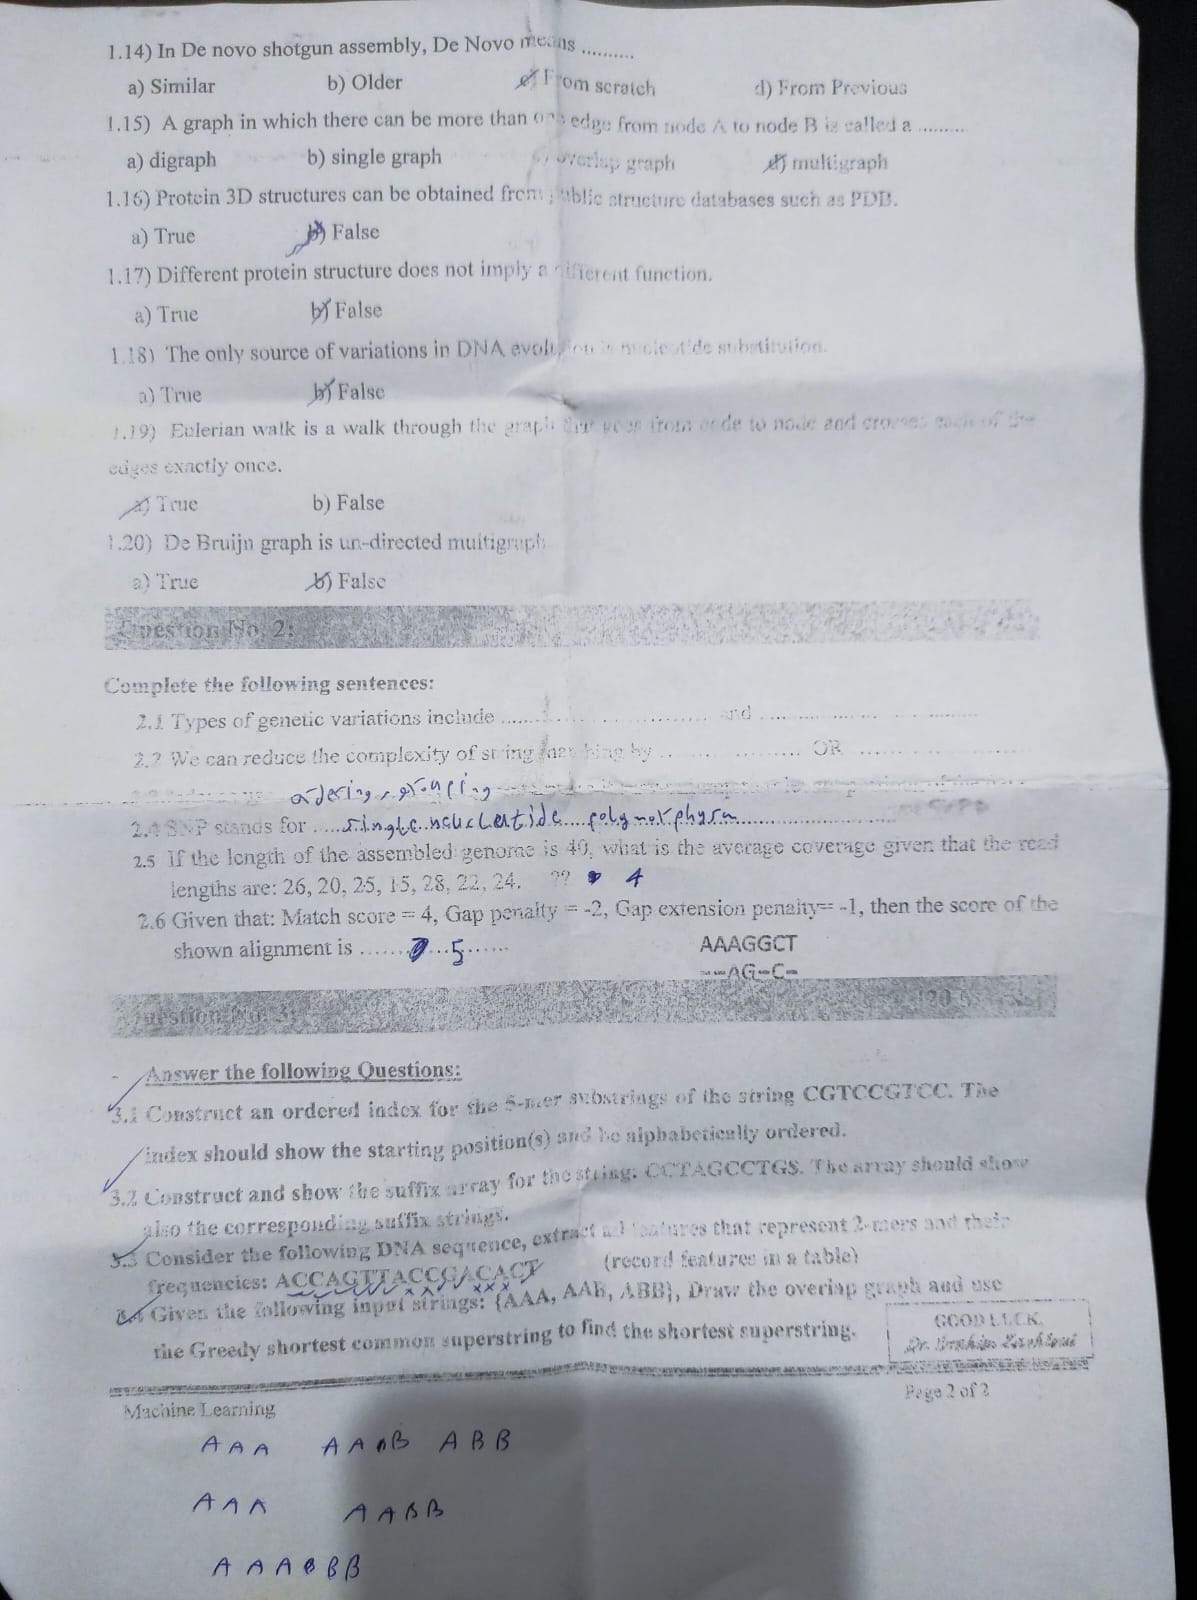 1.14) In De novo shotgun assembly, De Novo means ..........
a) Similar b) Older c) From scratch d) From Previous
1.15) A graph in which there can be more than one edge from node A to node B is called a .........
a) digraph b) single graph c) overlap graph d) multigraph
1.16) Protein 3D structures can be obtained from public structure databases such as PDB.
a) True b) False
1.17) Different protein structure does not imply a different function.
a) True b) False
1.18) The only source of variations in DNA evolution is nucleotide substitution.
a) True b) False
1.19) Eulerian walk is a walk through the graph that goes from node to node and crosses each of the
edges exactly once.
a) True b) False
1.20) De Bruijn graph is un-directed multigraph
a) True b) False
Question No. 2:
Complete the following sentences:
2.1 Types of genetic variations include .......... and ..........
2.2 We can reduce the complexity of string matching by .......... OR ..........
ordering, grouping
2.4 SNP stands for ..... single neucleutide polymorphysm ..........
2.5 If the length of the assembled genome is 40, what is the average coverage given that the read
lengths are: 26, 20, 25, 15, 28, 22, 24. ?? 4
2.6 Given that: Match score = 4, Gap penalty = -2, Gap extension penalty= -1, then the score of the
shown alignment is .......... 5 ..... AAAGGCT
--AG-C-
Question No. 3:
Answer the following Questions:
3.1 Construct an ordered index for the 5-mer substrings of the string CGTCCGTCC. The
index should show the starting position(s) and be alphabetically ordered.
3.2 Construct and show the suffix array for the string: CCTAGCCTG$. The array should show
also the corresponding suffix strings.
3.3 Consider the following DNA sequence, extract all features that represent 2-mers and their
frequencies: ACCAGTTACCGACACT (record features in a table)
3.4 Given the following input strings: {AAA, AAB, ABB}, Draw the overlap graph and use
the Greedy shortest common superstring to find the shortest superstring.
GOOD LUCK,
Dr.
Page 2 of 2
Machine Learning
AAA AAB ABB
AAA AABB
AAABB